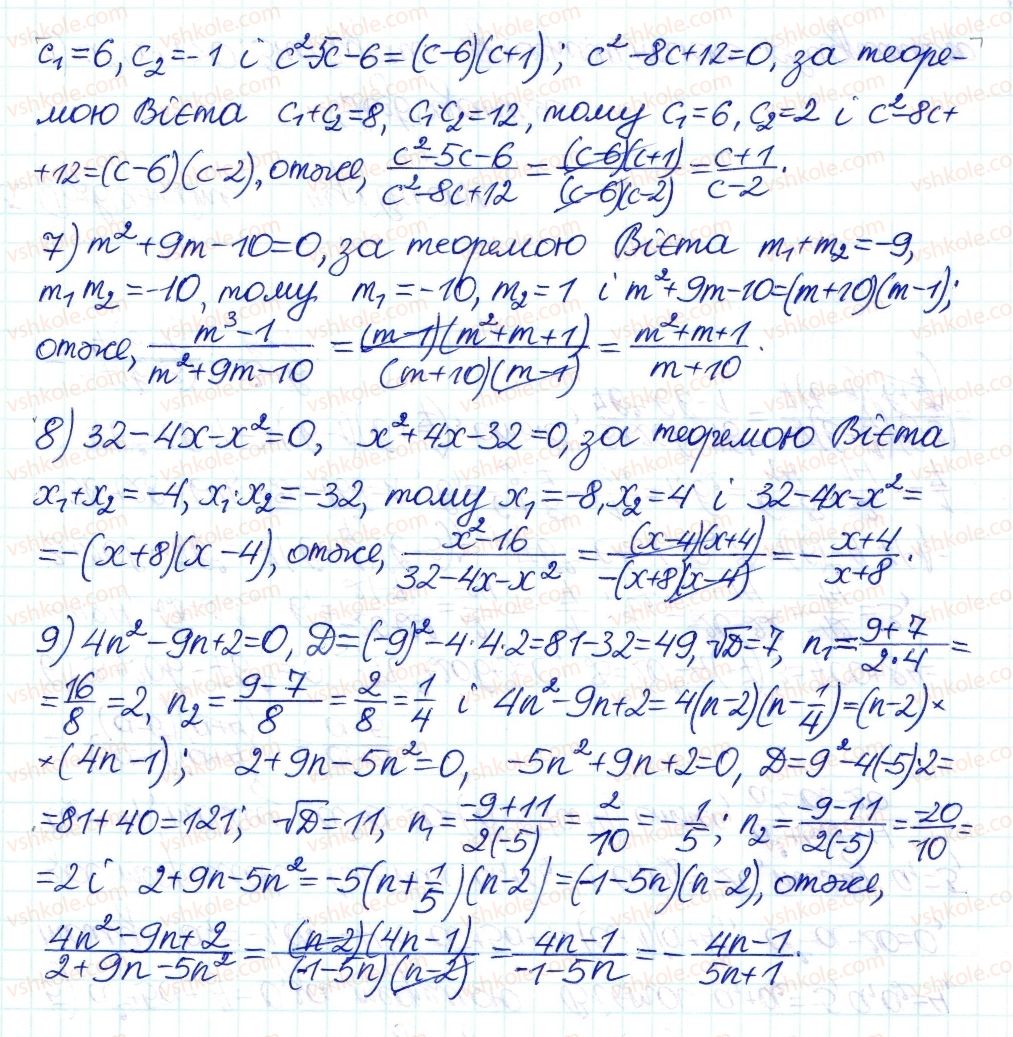 c₁=6, c₂=-1 і c²-5c-6=(c-6)(c+1); c²-8c+12=0, за теоре-
мою Вієта c₁+c₂=8, c₁c₂=12, тому c₁=6, c₂=2 і c²-8c+
+12=(c-6)(c-2), отже, (c²-5c-6)/(c²-8c+12) = ((c-6)(c+1))/((c-6)(c-2)) = (c+1)/(c-2).
7) m²+9m-10=0, за теоремою Вієта m₁+m₂=-9,
m₁m₂=-10, тому m₁=-10, m₂=1 і m²+9m-10=(m+10)(m-1);
отже, (m³-1)/(m²+9m-10) = ((m-1)(m²+m+1))/((m+10)(m-1)) = (m²+m+1)/(m+10).
8) 32-4x-x²=0, x²+4x-32=0, за теоремою Вієта
x₁+x₂=-4, x₁·x₂=-32, тому x₁=-8, x₂=4 і 32-4x-x²=
=-(x+8)(x-4), отже, (x²-16)/(32-4x-x²) = ((x-4)(x+4))/(-(x+8)(x-4)) = -(x+4)/(x+8).
9) 4n²-9n+2=0, D=(-9)²-4·4·2=81-32=49, √D=7, n₁=(9+7)/(2·4)=
=16/8=2, n₂=(9-7)/8=2/8=1/4 і 4n²-9n+2=4(n-2)(n-1/4)=(n-2)×
×(4n-1); 2+9n-5n²=0, -5n²+9n+2=0, D=9²-4(-5)·2=
=81+40=121; √D=11, n₁=(-9+11)/(2(-5))=2/-10=-1/5; n₂=(-9-11)/(2(-5))=-20/-10=
=2 і 2+9n-5n²=-5(n+1/5)(n-2)=(-1-5n)(n-2), отже,
(4n²-9n+2)/(2+9n-5n²) = ((n-2)(4n-1))/((-1-5n)(n-2)) = (4n-1)/(-1-5n) = -(4n-1)/(5n+1).